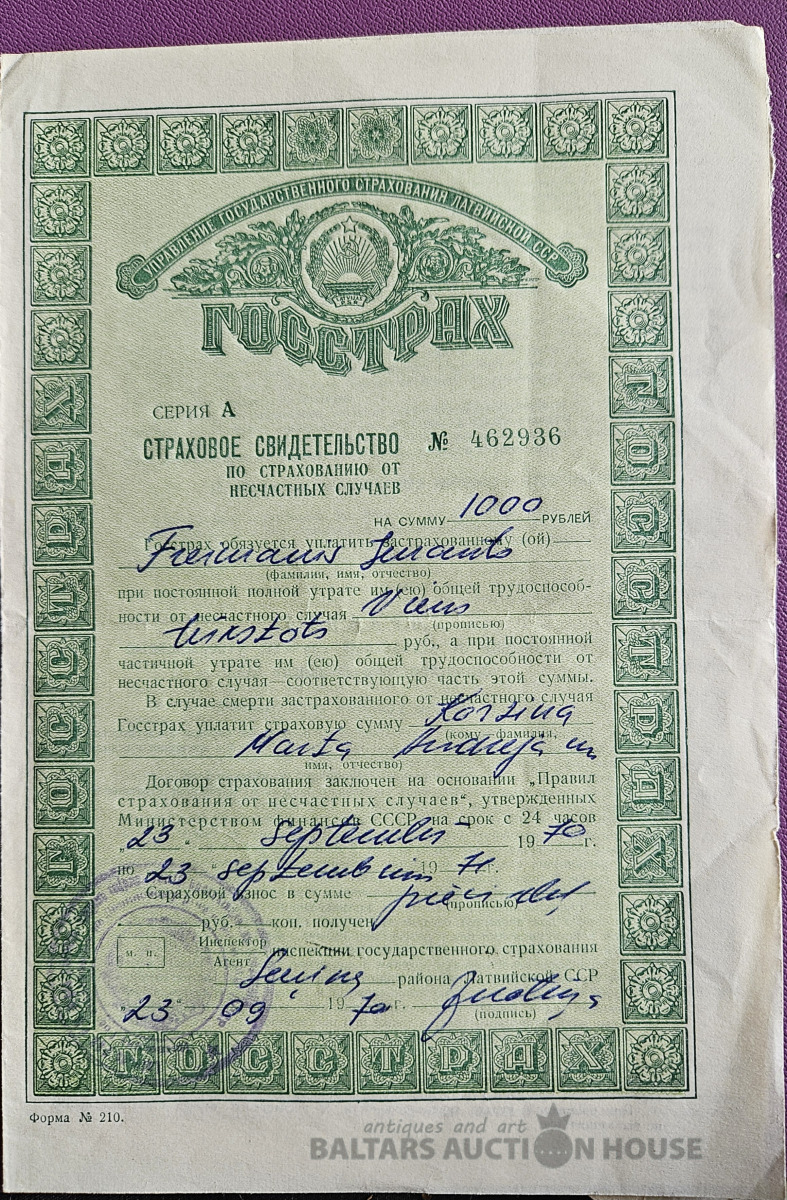 УПРАВЛЕНИЕ ГОСУДАРСТВЕННОГО СТРАХОВАНИЯ ЛАТВИЙСКОЙ ССР
ГОССТРАХ
СЕРИЯ А
СТРАХОВОЕ СВИДЕТЕЛЬСТВО № 462936
ПО СТРАХОВАНИЮ ОТ
НЕСЧАСТНЫХ СЛУЧАЕВ
НА СУММУ 1000 РУБЛЕЙ
Госстрах обязуется уплатить застрахованному (ой)
(фамилия, имя, отчество)
при постоянной полной утрате им (ею) общей трудоспособ-
ности от несчастного случая Viens
(прописью)
tūkstots руб., а при постоянной
частичной утрате им (ею) общей трудоспособности от
несчастного случая—соответствующую часть этой суммы.
В случае смерти застрахованного от несчастного случая
Госстрах уплатит страховую сумму
(кому—фамилия,
Marta Andreja m
имя, отчество)
Договор страхования заключен на основании „Правил
страхования от несчастных случаев", утвержденных
Министерством финансов СССР, на срок с 24 часов
„23" septembris 1970 г.
по 23 " septembrim 1971 г.
Страховой взнос в сумме
(прописью)
руб. коп. получен
м. п.
Инспектор
Агент
инспекции государственного страхования
района Латвийской ССР
„23" 09 1970 г.
(подпись)
ГОССТРАХ
ГОССТРАХ
ГОССТРАХ
Форма № 210.
antiques and art
BALTARS AUCTION HOUSE